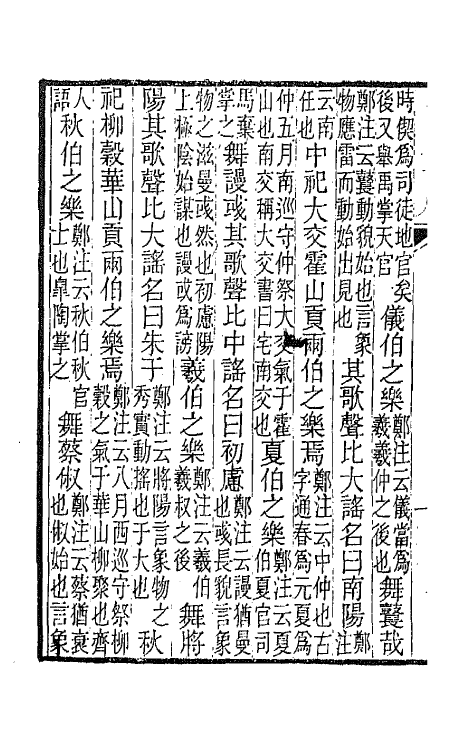 時偰爲司徒地官矣後又舉禹掌天官儀伯之樂鄭注云儀當爲羲羲仲之後也舞鼚哉
鄭注云鼚動貌始也言象物應雷而動始出見也其歌聲比大謠名曰南陽鄭注
云南任也中祀大交霍山貢兩伯之樂焉鄭注云中仲也古字通春爲元夏爲
仲五月南巡守仲祭大交氣于霍山也南交稱大交書曰宅南交也夏伯之樂鄭注云夏伯夏官司
馬棄掌之舞謾彧其歌聲比中謠名曰初慮鄭注云謾猶曼也彧長貌言象
物之滋曼彧然也初慮陽上極陰始謀也謾或爲謗羲伯之樂鄭注云羲伯羲叔之後舞將
陽其歌聲比大謠名曰朱于鄭注云將陽言象物之秀實動搖也于大也秋
祀柳穀華山貢兩伯之樂焉鄭注云八月西巡守祭柳穀之氣于華山柳聚也齊
人語秋伯之樂鄭注云秋伯秋官士也臯陶掌之舞蔡俶鄭注云蔡猶衰也俶始也言象